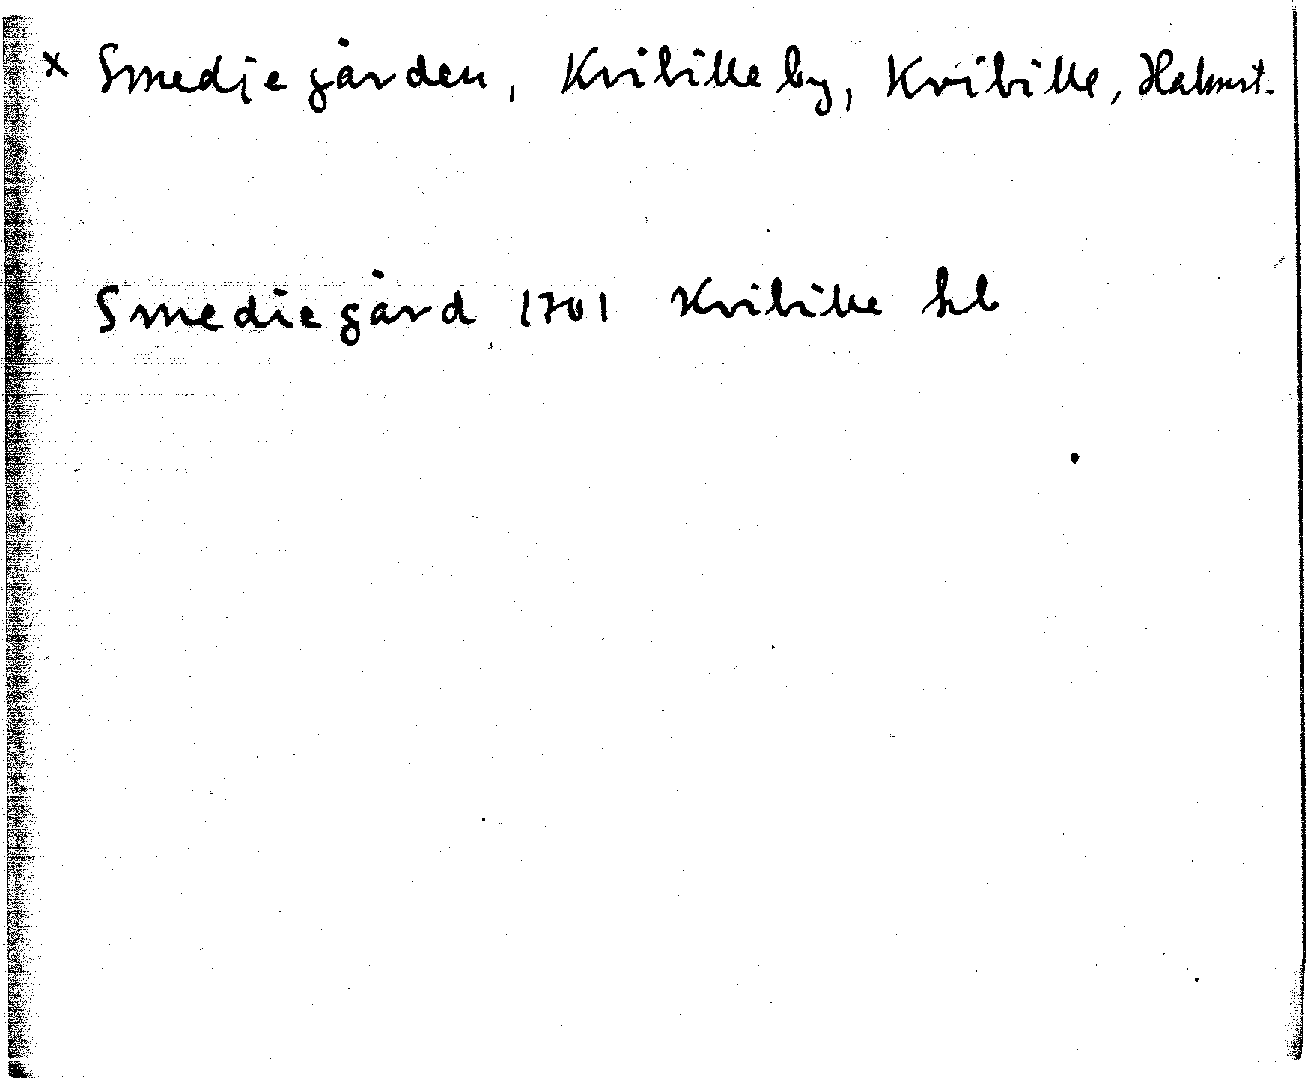 x Smedjegården, Kvibille by, Kvibille, Halmst.
Smediegård 1701 Kvibille kb